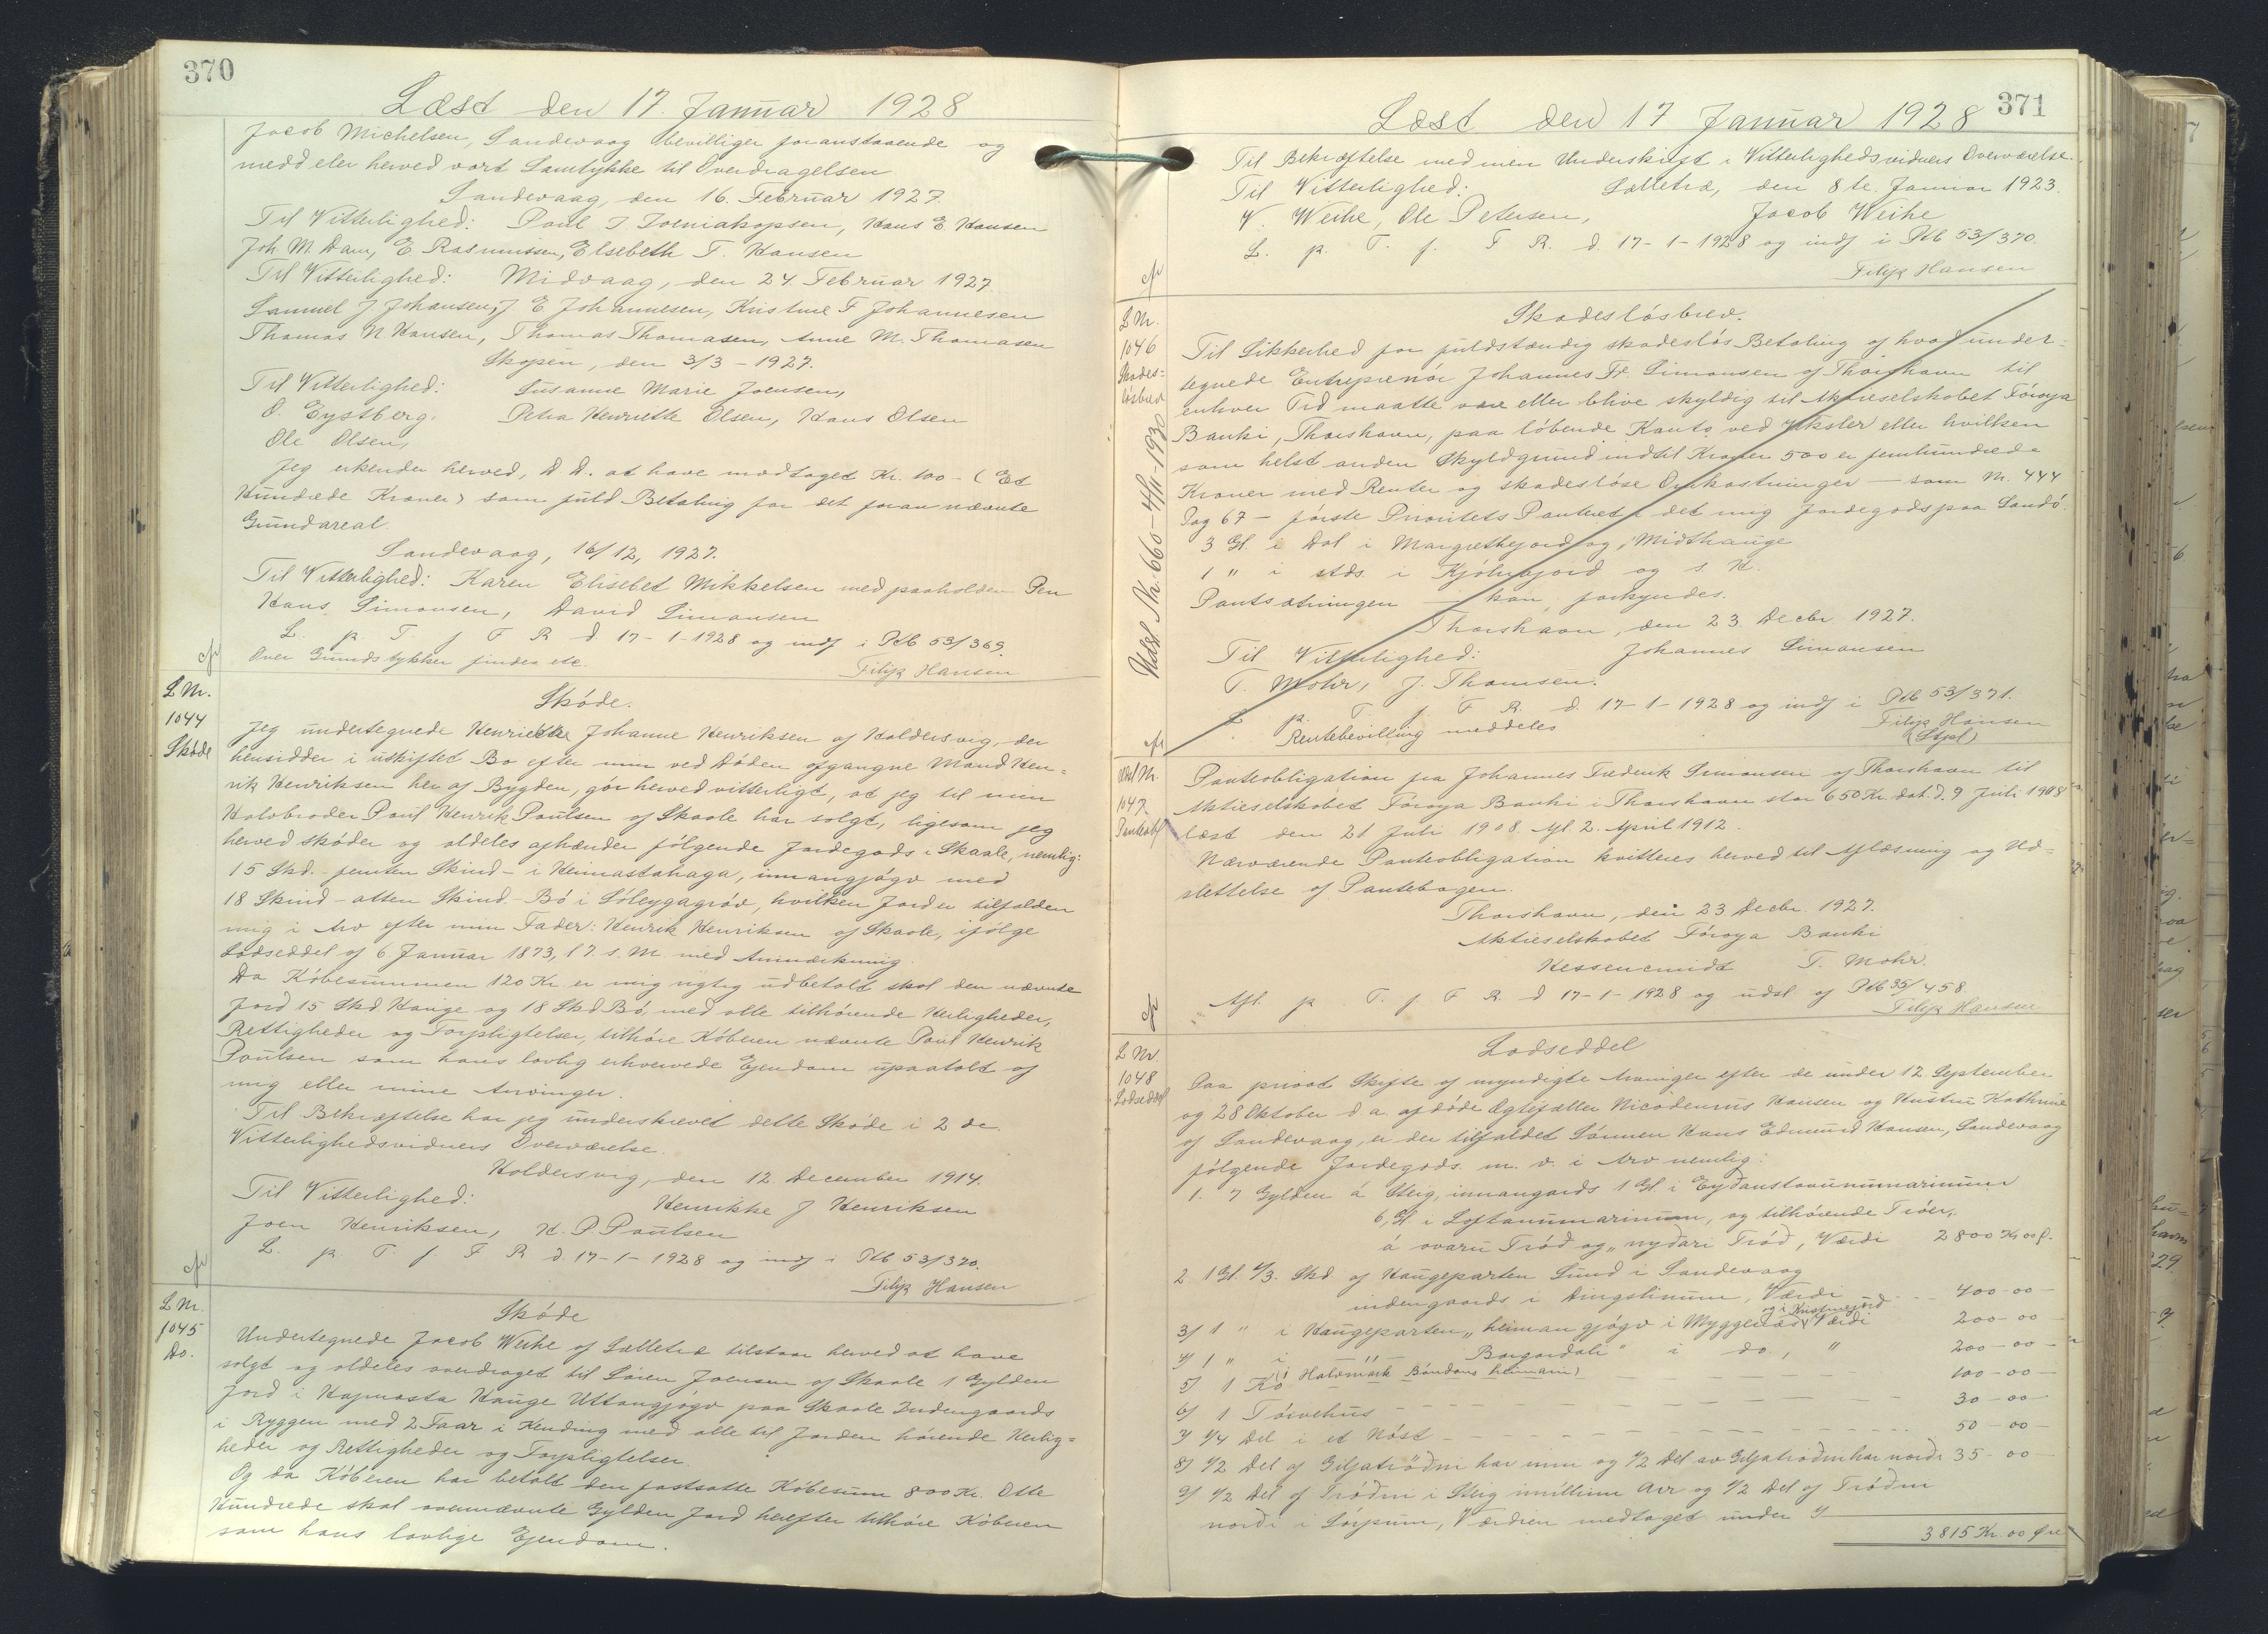 370
Læst den 17. Januar 1928
Jacob Michelsen, Sandevaag bevilliger foranstaaende og
meddeler herved vort Samtykke til Overdragelsen
Sandevaag, den 16. Februar 1927.
Til Vitterlighed: Poul J. Joeniakopsen, Hans E. Hansen
Joh M. Dam, E. Rasmussen, Elsebeth T. Hansen
Til Vitterlighed: Midvaag, den 24. Februar 1927
Samuel J Johansen, J E Johannesen, Kristine F Johannesen
Thomas N. Hansen, Thomas Thomasen, Anne M. Thomasen
Skopen, den 3/3 - 1927.
Til Vitterlighed: Susanne Marie Joensen,
O. Eystberg. Petra Henriette Olsen, Hans Olsen
Ole Olsen,
Jeg erkender herved, D. D. at have modtaget Kr. 100 - (Et
Hundrede Kroner) som fuld Betaling for det foran nævnte
Grundareal.
Sandevaag, 16/12, 1927.
Til Vitterlighed: Karen Elisebet Mikkelsen med paaholden Pen
Hans Simonsen, David Simonsen
L. p. T. f. F R d 17-1-1928 og indf i Ptb 53/369.
Over Grundstykker findes etc. Filip Hansen
L Nr.
1044
Skøde
Skøde.
Jeg undertegnede Henrikke Johanne Henriksen af Haldersvig, der
hensidder i uskiftet Bo efter min ved Døden afgangne Mand Hen-
rik Henriksen her af Bygden, gør herved vitterligt, at jeg til min
Halvbroder Poul Henrik Poulsen af Skaale har solgt, ligesom jeg
herved skøder og aldeles afhænder følgende Jordegods i Skaale, nemlig:
15 Skd. - femten Skind - i Heimastahaga, innangjógv med
18 Skind - atten Skind - Bó i Sóleygagróv, hvilken Jord er tilfalden
mig i Arv efter min Fader: Henrik Henriksen af Skaale, ifølge
Lodseddel af 6 Januar 1873, l 7. s. M. med Anmærkning.
Da Købesummen 120 Kr. er mig rigtig udbetalt skal den nævnte
Jord 15 Skd Hauge og 18 Skd Bó, med alle tilhørende Herligheder,
Rettigheder og Forpligtelser, tilhøre Køberen nævnte Poul Henrik
Poulsen som hans lovlig erhvervede Ejendom upaatalt af
mig eller mine Arvinger.
Til Bekræftelse har jeg underskrevet dette Skøde i 2 de
Vitterlighedsvidners Overværelse.
Haldersvig, den 12. December 1914.
Til Vitterlighed: Henrikke J Henriksen
Joen Henriksen, H. P. Poulsen
L. p. T. f. F R d. 17-1-1928 og indf i Ptb 53/370.
Filip Hansen
L Nr.
1045
Do.
Skøde
Undertegnede Jacob Weihe af Selletræ tilstaar herved at have
solgt og aldeles overdraget til Søren Joensen af Skaale 1 Gylden
Jord i Hajmasta Hauge Uttangjógv paa Skaale Indengaards
i Ryggen med 2 Faar i Kending med alle til Jorden hørende Herlig-
heder og Rettigheder og Forpligtelser.
Og da Køberen har betalt den fastsatte Købesum 800 Kr. Otte
Hundrede skal ovennævnte Gylden Jord herefter tilhøre Køberen
som hans lovlige Ejendom.
371
Læst den 17 Januar 1928
Til Bekræftelse med min Underskrift i Vitterlighedsvidners Overværelse.
Til Vitterlighed: Selletræ, den 8 te. Januar 1923.
V. Weihe, Ole Petersen, Jacob Weihe
L. p. T. f. F R. d. 17-1-1928 og indf i Ptb 53/370.
Filip Hansen
L Nr.
1046
Skades-
løsbrev
Udsl. Nr. 660 - 4/11 - 1930
Skadesløsbrev.
Til Sikkerhed for fuldstændig skadesløs Betaling af hvad under-
tegnede Entreprenør Johannes Fr. Simonsen af Thorshavn til
enhver Tid maatte være eller blive skyldig til Aktieselskabet Føroya
Banki, Thorshavn, paa løbende Konto ved Veksler eller hvilken
som helst anden Skyldgrund indtil Kroner 500 er femhundrede
Kroner med Renter og skadesløse Omkostninger - som Nr. 444
Dag 67 - første Prioritets Panteret i det mig Jordegods paa Sandø.
3 Gl. i Dal i Margrethejord og i Midthauge
1 " i stds. i Kjølnejord og s. H.
Pantsætningen kan forkyndes.
Thorshavn, den 23. Decbr 1927.
Til Vitterlighed: Johannes Simonsen
T. Mohr, J. Thomsen.
L p. T. f F R. d. 17-1-1928 og indf i Ptb 53/371.
Rentebevilling meddeles Filip Hansen
(Stpl)
Udsl Nr.
1047.
Panteobl
Panteobligation fra Johannes Frederik Simonsen af Thorshavn til
Aktieselskabet Føroya Banki i Thorshavn stor 650 Kr. dat. d. 9 Juli 1908
læst den 21 Juli 1908. Afl. 2. April 1912.
Nærværende Panteobligation kvitteres herved til Aflæsning og Ud-
slettelse af Pantebogen.
Thorshavn, den 23 Decbr. 1927.
Aktieselskabet Føroya Banki
T. Mohr.
Afl. p. T. f F R. d 17-1-1928 og udsl. af Ptb 35/458
Filip Hansen
L Nr.
1048
Lodseddel
Lodseddel
Paa privat Skifte af myndigte Arvinger efter de under 12. September
og 28 Oktober d. a. afdøde Ægtefæller Nicodemus Hansen og Hustru Kathrine
af Sandevaag, er der tilfaldet Sønnen Hans Edmund Hansen, Sandevaag
følgende Jordegods m. v. i Arv nemlig:
1. 7 Gylden á Steig, innangards 1 Gl. i Eyðanstovunummarinum
6, Gl i Loftanummarinum, og tilhørende Trøer,
á ovaru Trød og "nyðari Trød, Værdi 2800 Kr 00 ø.
2 1 Gl. 4/3. Skd. af Haugeparten Sund i Sandevaag
indengaards i Dingslinum, Værdi 400-00-
3/ 1 " i Haugeparten "heiman gjógv i Myggenæs og i Kustmejørd Værdi 200-00
4/ 1 " i -"- Borgardali" i do., " 200-00-
5/ 1 Kó (i Halvmørk Bóndans heimani) 100-00-
6/ 1 Tórvehús 30-00-
7/ 1/4 Del i et Nóst 50-00-
8/ 1/2 Del af Giljatrøðni har inni og 1/2 Del av Giljatrøðni har norði 35-00
9/ 1/2 Del af Trøðni i Steig imillum Áir og 1/2 Del af Trøðni
norði i Lørpum, Værdien medtaget under 1/
3815 Kr. 00 Øre